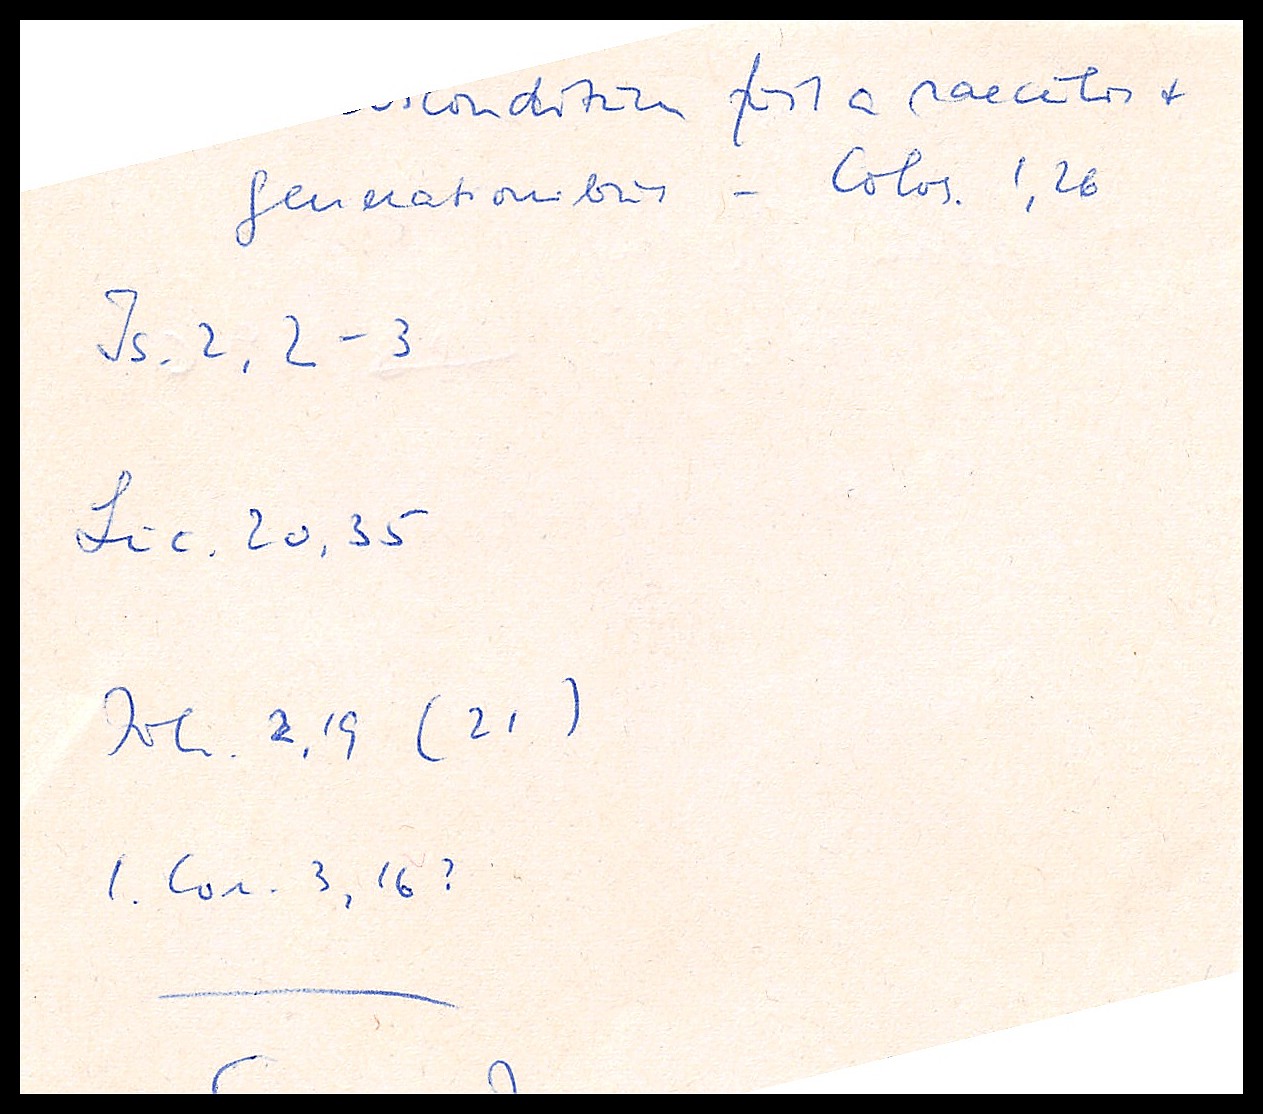 absconditum fuit a saeculis +
generationibus - Colos. 1,26
Is. 2, 2-3
Luc. 20, 35
Joh. 2,19 (21)
1. Cor. 3, 16?